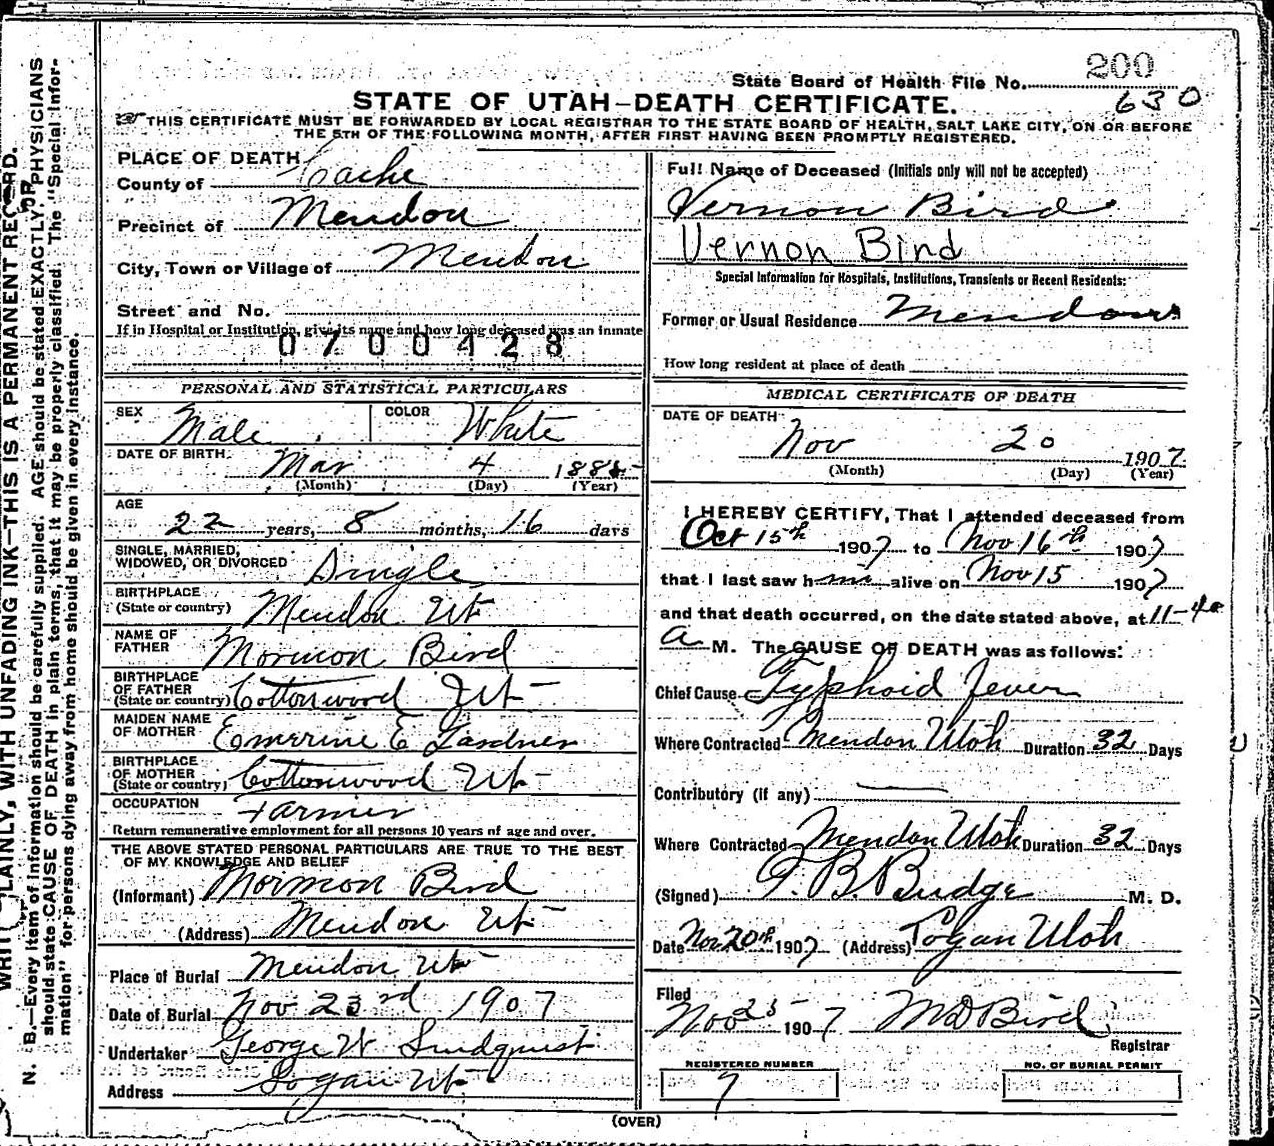 WRITE PLAINLY, WITH UNFADING INK—THIS IS A PERMANENT RECORD.
N. B.—Every item of information should be carefully supplied. AGE should be stated EXACTLY. PHYSICIANS
should state CAUSE OF DEATH in plain terms, that it may be properly classified. The "Special Infor-
mation" for persons dying away from home should be given in every instance.
200
State Board of Health File No.
630
STATE OF UTAH—DEATH CERTIFICATE.
THIS CERTIFICATE MUST BE FORWARDED BY LOCAL REGISTRAR TO THE STATE BOARD OF HEALTH, SALT LAKE CITY, ON OR BEFORE
THE 5TH OF THE FOLLOWING MONTH, AFTER FIRST HAVING BEEN PROMPTLY REGISTERED.
PLACE OF DEATH
County of Cache
Precinct of Mendon
City, Town or Village of Mendon
Street and No.
If in Hospital or Institution, give its name and how long deceased was an inmate
0700428
PERSONAL AND STATISTICAL PARTICULARS
SEX Male COLOR White
DATE OF BIRTH Mar 4 1885
(Month) (Day) (Year)
AGE
22 years, 8 months, 16 days
SINGLE, MARRIED,
WIDOWED, OR DIVORCED Single
BIRTHPLACE
(State or country) Mendon Ut
NAME OF
FATHER Mormon Bird
BIRTHPLACE
OF FATHER
(State or country) Cottonwood Ut
MAIDEN NAME
OF MOTHER Emerine E Gardner
BIRTHPLACE
OF MOTHER
(State or country) Cottonwood Ut
OCCUPATION Farmer
Return remunerative employment for all persons 10 years of age and over.
THE ABOVE STATED PERSONAL PARTICULARS ARE TRUE TO THE BEST
OF MY KNOWLEDGE AND BELIEF
(Informant) Mormon Bird
(Address) Mendon Ut
Place of Burial Mendon Ut
Date of Burial Nov 23rd 1907
Undertaker George W Lindquist
Address Logan Ut
Full Name of Deceased (Initials only will not be accepted)
Vernon Bird
Vernon Bird
Special Information for Hospitals, Institutions, Transients or Recent Residents:
Former or Usual Residence Mendon
How long resident at place of death
MEDICAL CERTIFICATE OF DEATH
DATE OF DEATH
Nov 20 1907
(Month) (Day) (Year)
I HEREBY CERTIFY, That I attended deceased from
Oct 15th 1907 to Nov 16th 1907
that I last saw him alive on Nov 15 1907
and that death occurred, on the date stated above, at 11-40
a M. The CAUSE OF DEATH was as follows:
Chief Cause Typhoid Fever
Where Contracted Mendon Utah Duration 32 Days
Contributory (if any) —
Where Contracted Mendon Utah Duration 32 Days
(Signed) T. B. Budge M. D.
Date Nov 20th 1907 (Address) Logan Utah
Filed
Nov 25 1907 M D Bird
Registrar
REGISTERED NUMBER
7
NO. OF BURIAL PERMIT
(OVER)